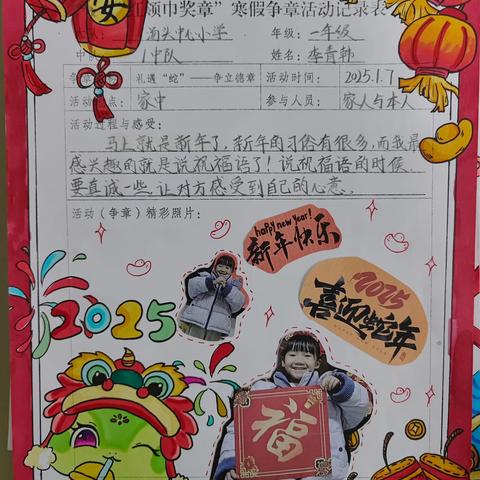 红领巾奖章”寒假争章活动记录表
汹头中心小学 年级: 一年级
中队 1中队 姓名: 李青韩
礼遇“蛇”——争立德章 活动时间: 2025.1.7
活动 点: 家中 参与人员: 家人与本人
活动过程与感受:
马上就是新年了,新年的习俗有很多,而我最
感兴趣的就是说祝福语了!说祝福语的时候
要真诚一些,让对方感受到自己的心意。
活动(争章)精彩照片:
happy new year!
新年快乐
2025
喜迎蛇年
2025
福
安